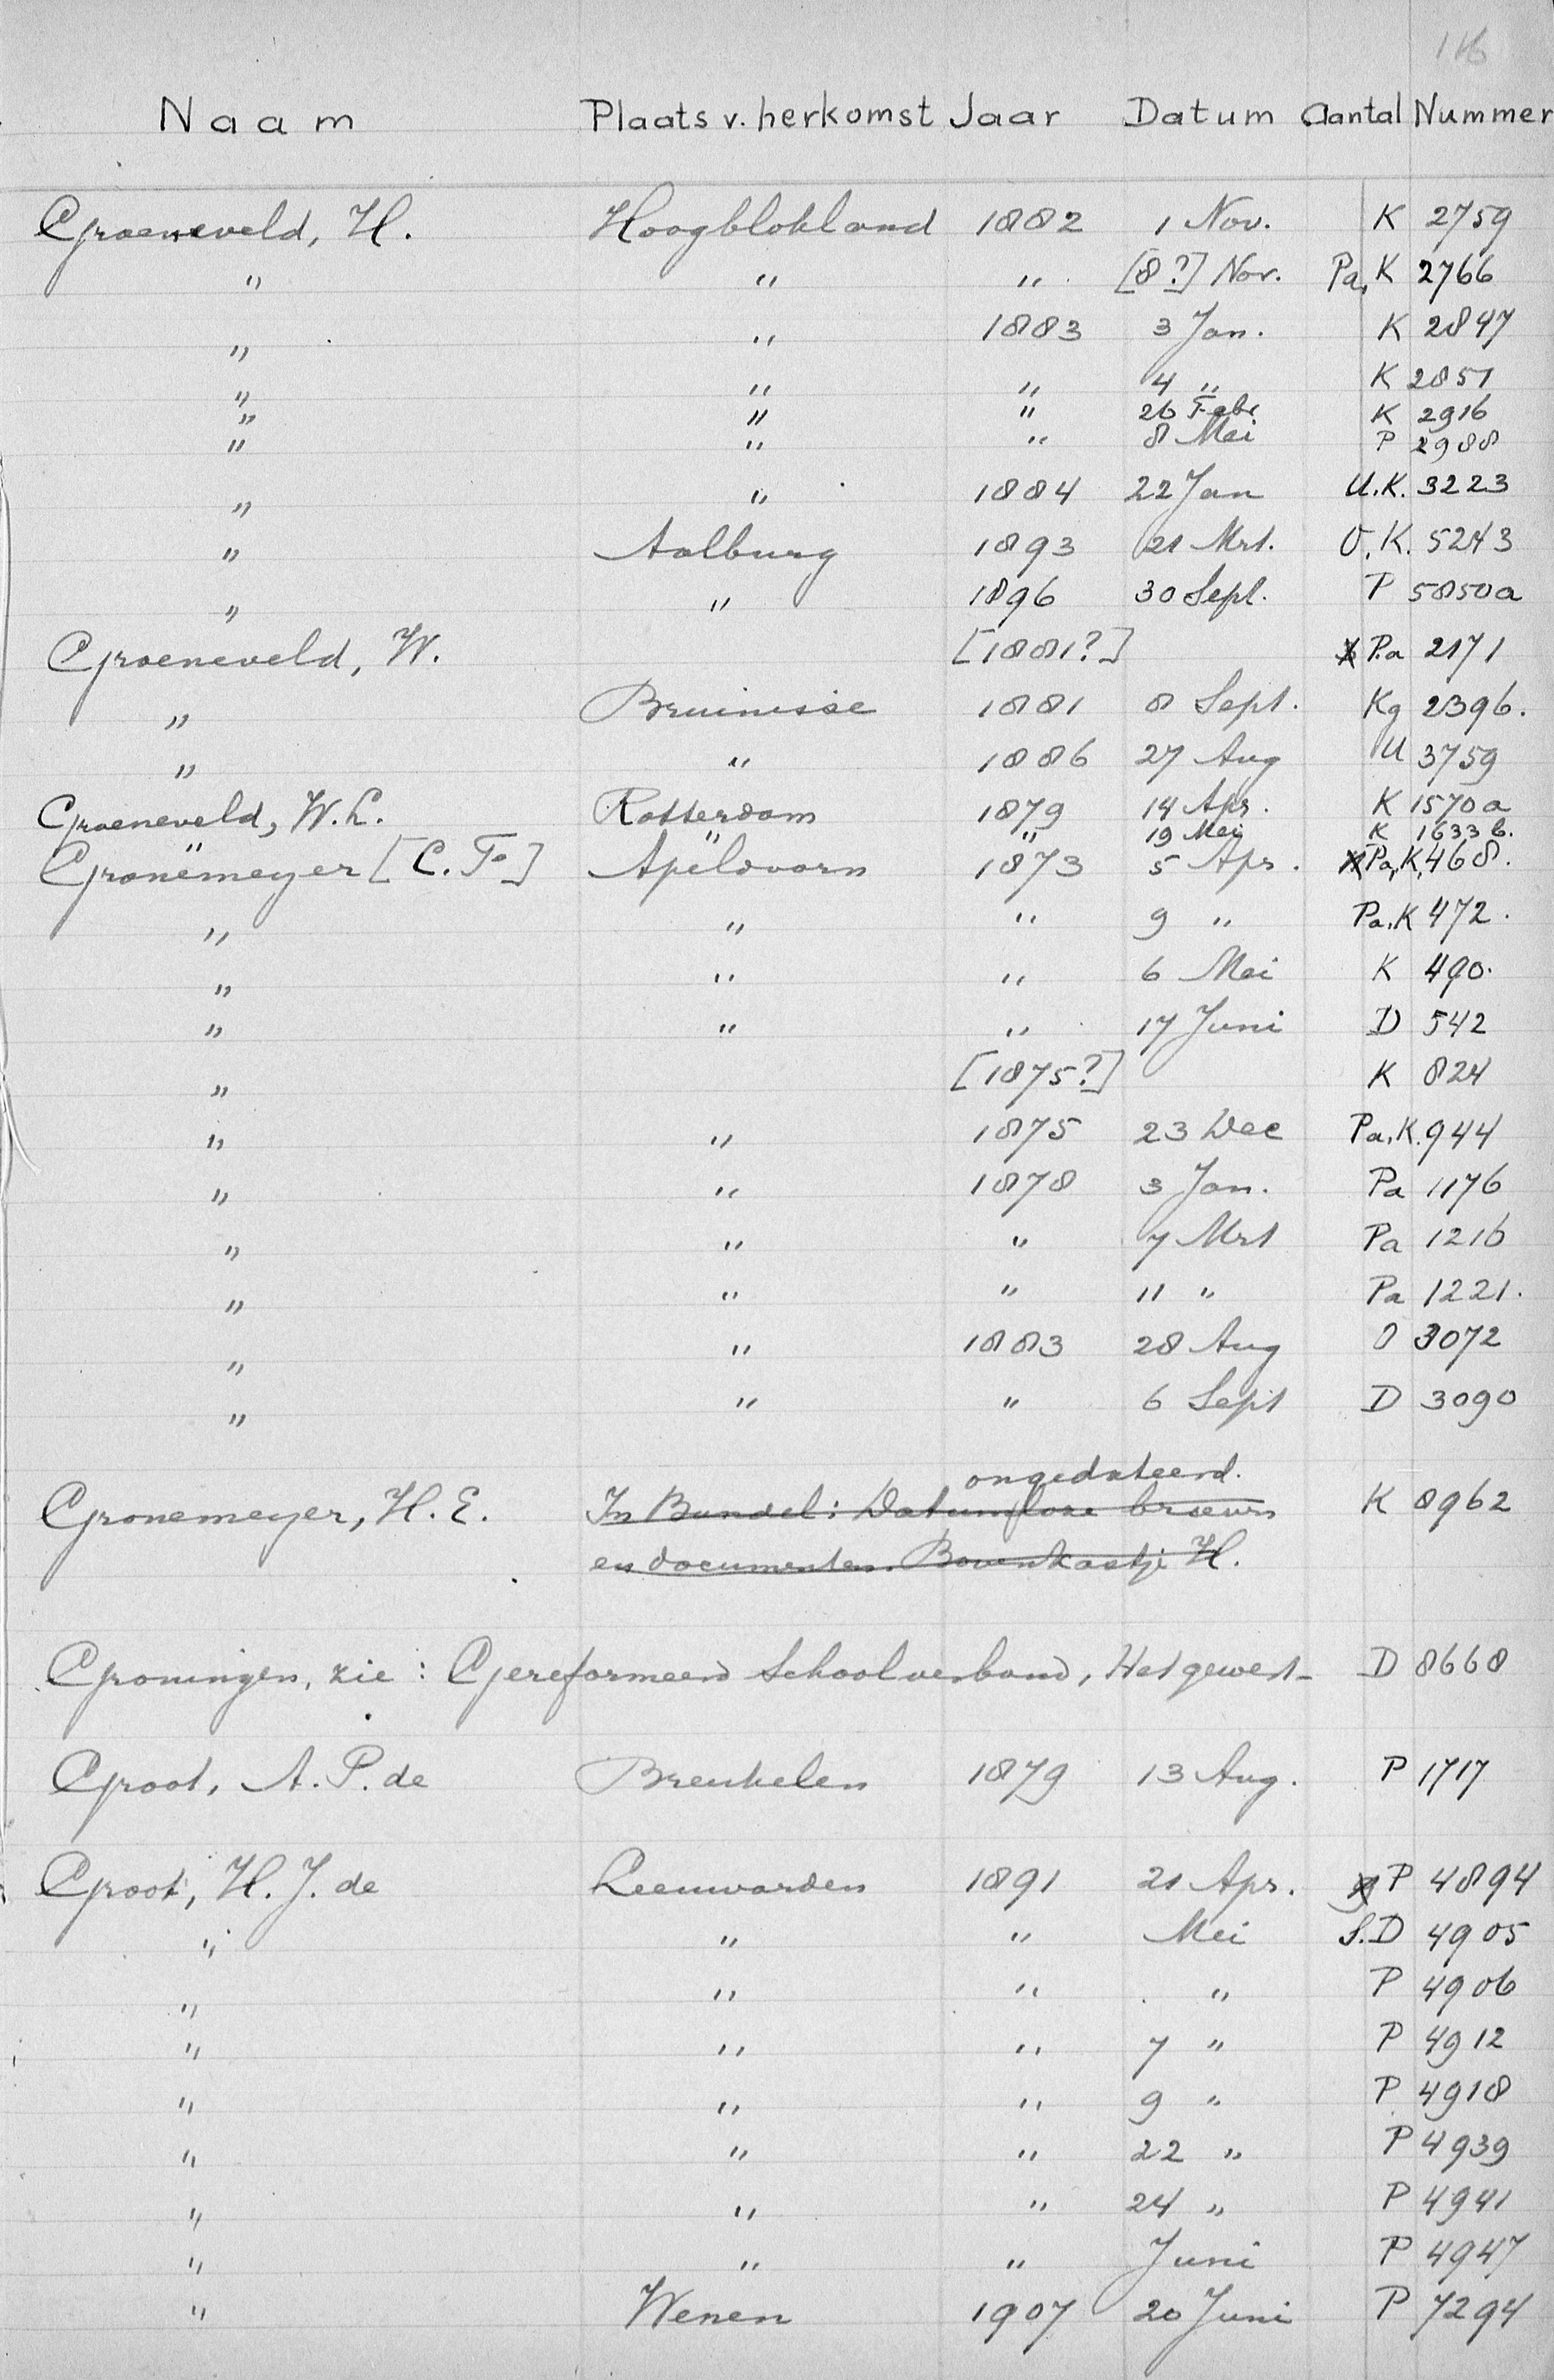 116
Naam Plaats v. herkomst Jaar Datum Aantal Nummer
Groeneveld, H. Hoogblokland 1882 1 Nov. K 2759
" " " [8?] Nov. Pa, K 2766
" " 1883 3 Jan. K 2847
" " " 4 " K 2851
" " " 26 Febr K 2916
" " " 8 Mei P 2988
" " 1884 22 Jan U.K. 3223
" Aalburg 1893 21 Mrt. O.K. 5243
" " 1896 30 Sept. P 5850a
Groeneveld, W. [1881?] Pa 2171
" Bruinisse 1881 8 Sept. Kg 2396.
" " 1886 27 Aug U 3759
Groeneveld, W.L. Rotterdam 1879 14 Apr. K 1570a
" " 19 Mei K 1633b.
Gronemeyer [C. F.] Apeldoorn 1873 5 Apr. Pa, K, 468.
" " " 9 " Pa, K 472.
" " " 6 Mei K 490.
" " " 17 Juni D 542
" [1875?] K 824
" " 1875 23 Dec Pa, K. 944
" " 1878 3 Jan. Pa 1176
" " " 7 Mrt Pa 1216
" " " 11 " Pa 1221.
" " 1883 28 Aug O 3072
" " " 6 Sept D 3090
ongedateerd.
Gronemeyer, H. E. In Bundel: Datumloze brieven K 8962
en documenten. Bovenkastje H.
Groningen, zie: Gereformeerd Schoolverband, Het gewest- D 8668
Groot, A. P. de Breukelen 1879 13 Aug. P 1717
Groot, H. J. de Leeuwarden 1891 21 Apr. P 4894
" " " Mei S.D 4905
" " " " P 4906
" " " 7 " P 4912
" " " 9 " P 4918
" " " 22 " P 4939
" " " 24 " P 4941
" " " Juni P 4947
" Wenen 1907 20 Juni P 7294